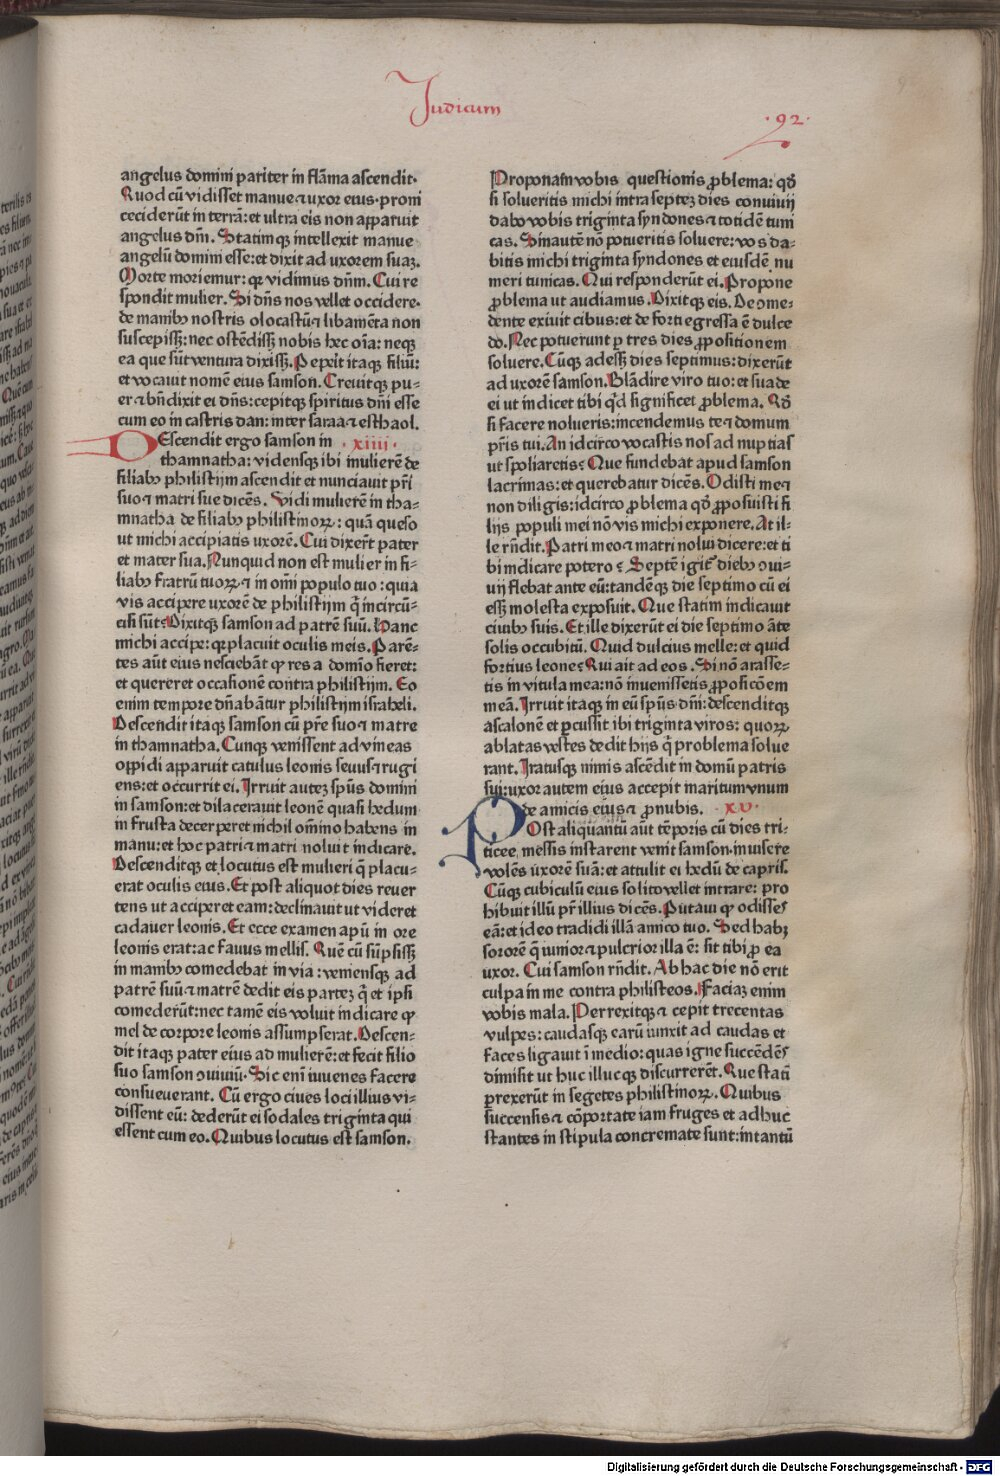 Judicum
·92·
angelus domini pariter in flāma ascendit·
Quod cū vidisset manue ⁊ uxor eius·proni
ceciderūt in terrā:et ultra eis non apparuit
angelus dn̄i. Statimqꝫ intellexit manue
angelū domini esse:et dixit ad uxorem suaꝫ.
Morte moriemur:qꝛ vidimus dn̄m. Cui re
spondit mulier. Si dn̄s nos vellet occidere·
de manibꝰ nostris olocaustū⁊ libamēta non
suscepissꝫ:nec ostēdissꝫ nobis hec oīa: neqꝫ
ea que sūt ventura dixissꝫ.Peperit itaqꝫ filiū:
et vocauit nomē eius samson. Creuitqꝫ pu-
er ⁊ bn̄dixit ei dn̄s:cepitqꝫ spiritus dn̄i esse
cum eo in castris dan: inter saraa⁊ esthaol.
DEscendit ergo samson in ·xiiii·
thamnatha: vidensqꝫ ibi mulierē de
filiabꝰ philistijm ascendit et nunciauit pr̄i
suo⁊ matri sue dicēs. Vidi mulierē in tha-
mnatha de filiabꝰ philistinoꝝ: quā queso
ut michi accipiatis uxorē. Cui dixer̄t pater
et mater sua.Nunquid non est mulier in fi-
liabꝰ fratrū tuoꝝ⁊ in om̄i populo tuo: quia
vis accipere uxorē de philistijm q̄ incircū-
cisi sūt:Dixitqꝫ samson ad patrē suū. Hanc
michi accipe:qꝛ placuit oculis meis.Parē-
tes aūt eius nesciebāt ꝙ res a domīo fieret:
et quereret occasionē contra philistijm. Eo
enim tempore dn̄abātur philistijm israheli.
Descendit itaqꝫ samson cū pr̄e suo⁊ matre
in thamnatha. Cunqꝫ venissent ad vineas
oppidi apparuit catulus leonis seuus⁊ rugi
ens:et occurrit ei. Irruit auteꝫ sp̄us domini
in samson:et dilacerauit leonē quasi hedum
in frusta decerperet nichil om̄ino habens in
manu:et hoc patri⁊ matri noluit indicare.
Descenditqꝫ et locutus est mulieri q̄ placu-
erat oculis eius. Et post aliquot dies reuer
tens ut acciperet eam:declinauit ut videret
cadauer leonis. Et ecce examen apū in ore
leonis erat:ac fauus mellis. Quē cū sūpsissꝫ
in manibꝰ comedebat in via:veniensqꝫ ad
patrē suū⁊ matrē dedit eis parteꝫ q̄ et ipsi
comederūt:nec tamē eis voluit indicare ꝙ
mel de corpore leonis assumpserat.Descen-
dit itaqꝫ pater eius ad mulierē:et fecit filio
suo samson ꝯuiuiū·Sic enī iuuenes facere
consueuerant. Cū ergo ciues loci illius vi-
dissent eū: dederūt ei sodales triginta qui
essent cum eo. Quibus locutus est samson.
Proponam vobis questionis ꝓblema: qd̄
si solueritis michi intra septeꝫ dies conuiuij
dabo vobis triginta syndones ⁊ totidē tuni
cas. Sinautē nō potueritis soluere: vos da-
bitis michi triginta syndones et eiusdē nu
meri tunicas. Qui responderūt ei. Propone
ꝓblema ut audiamus.Dixitqꝫ eis. De ꝯme-
dente exiuit cibus:et de forti egressa ē dulce
do. Nec potuerunt ꝑ tres dies ꝓpositionem
soluere. Cūqꝫ adessꝫ dies septimus: dixerūt
ad uxorē samson.Blādire viro tuo:et suade
ei ut indicet tibi qͥd significet ꝓblema. Qd̄
si facere nolueris:incendemus te⁊ domum
pr̄is tui. An idcirco vocastis nos ad nuptias
ut spoliaretis: Que fundebat apud samson
lacrimas:et querebatur dicēs. Odisti me⁊
non diligis:idcirco ꝓblema qd̄ ꝓposuisti fi
lijs populi mei nō vis michi exponere. At il-
le rn̄dit.Patri meo⁊ matri nolui dicere:et ti
bi indicare potero: Septē igit᷑ diebꝰ ꝯui-
uij flebat ante eū:tandēqꝫ die septimo cū ei
essꝫ molesta exposuit. Que statim indicauit
ciuibꝰ suis. Et ille dixerūt ei die septimo āte
solis occubitū. Quid dulcius melle: et quid
fortius leone:Qui ait ad eos. Si nō arasse-
tis in vitula mea:nō inuenissetis ꝓposicōem
meā. Irruit itaqꝫ in eū sp̄us dn̄i:descenditqꝫ
ascalonē et ꝑcussit ibi triginta viros: quoꝝ
ablatas vestes dedit hijs q̄ problema solue
rant. Iratusqꝫ nimis ascēdit in domū patris
sui:uxor autem eius accepit maritum vnum
de amicis eius⁊ ꝓnubis. ·xv·
POst aliquantū aūt tēporis cū dies tri-
ticee messis instarent venit samson inuisere
volēs uxorē suā: et attulit ei hedū de capris.
Cūqꝫ cubiculū eius solito vellet intrare: pro
hibuit illū pr̄ illius dicēs. Putaui ꝙ odisses
eā:et ideo tradidi illā amico tuo. Sed habꝫ
sororē q̄ iunior⁊ pulcrior illa ē: sit tibi ꝓ ea
uxor. Cui samson rn̄dit. Ab hac die nō erit
culpa in me contra philisteos. Faciaꝫ enim
vobis mala. Perrexitqꝫ⁊ cepit trecentas
vulpes:caudasqꝫ earū iunxit ad caudas et
faces ligauit ī medio:quas igne succēdēs
dimisit ut huc illucqꝫ discurrerēt. Que statī
ꝑrexerūt in segetes philistinoꝝ. Quibus
succensis⁊ cōportate iam fruges et adhuc
stantes in stipula concremate sunt:intantū
Digitalisierung gefördert durch die Deutsche Forschungsgemeinschaft - DFG